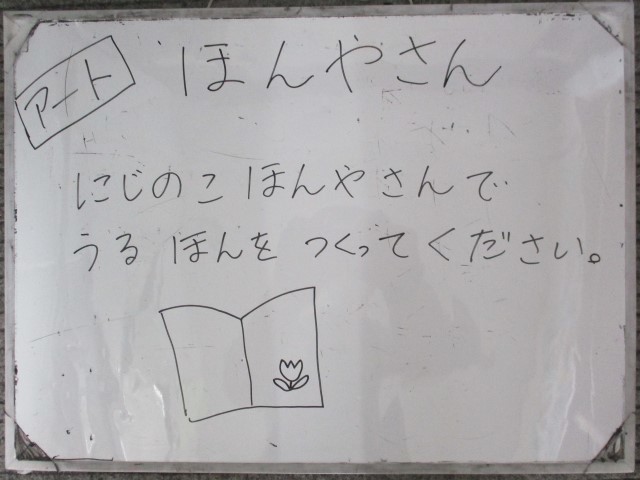 アート
ほんやさん
にじのこ ほんやさんで
うる ほんを つくってください。